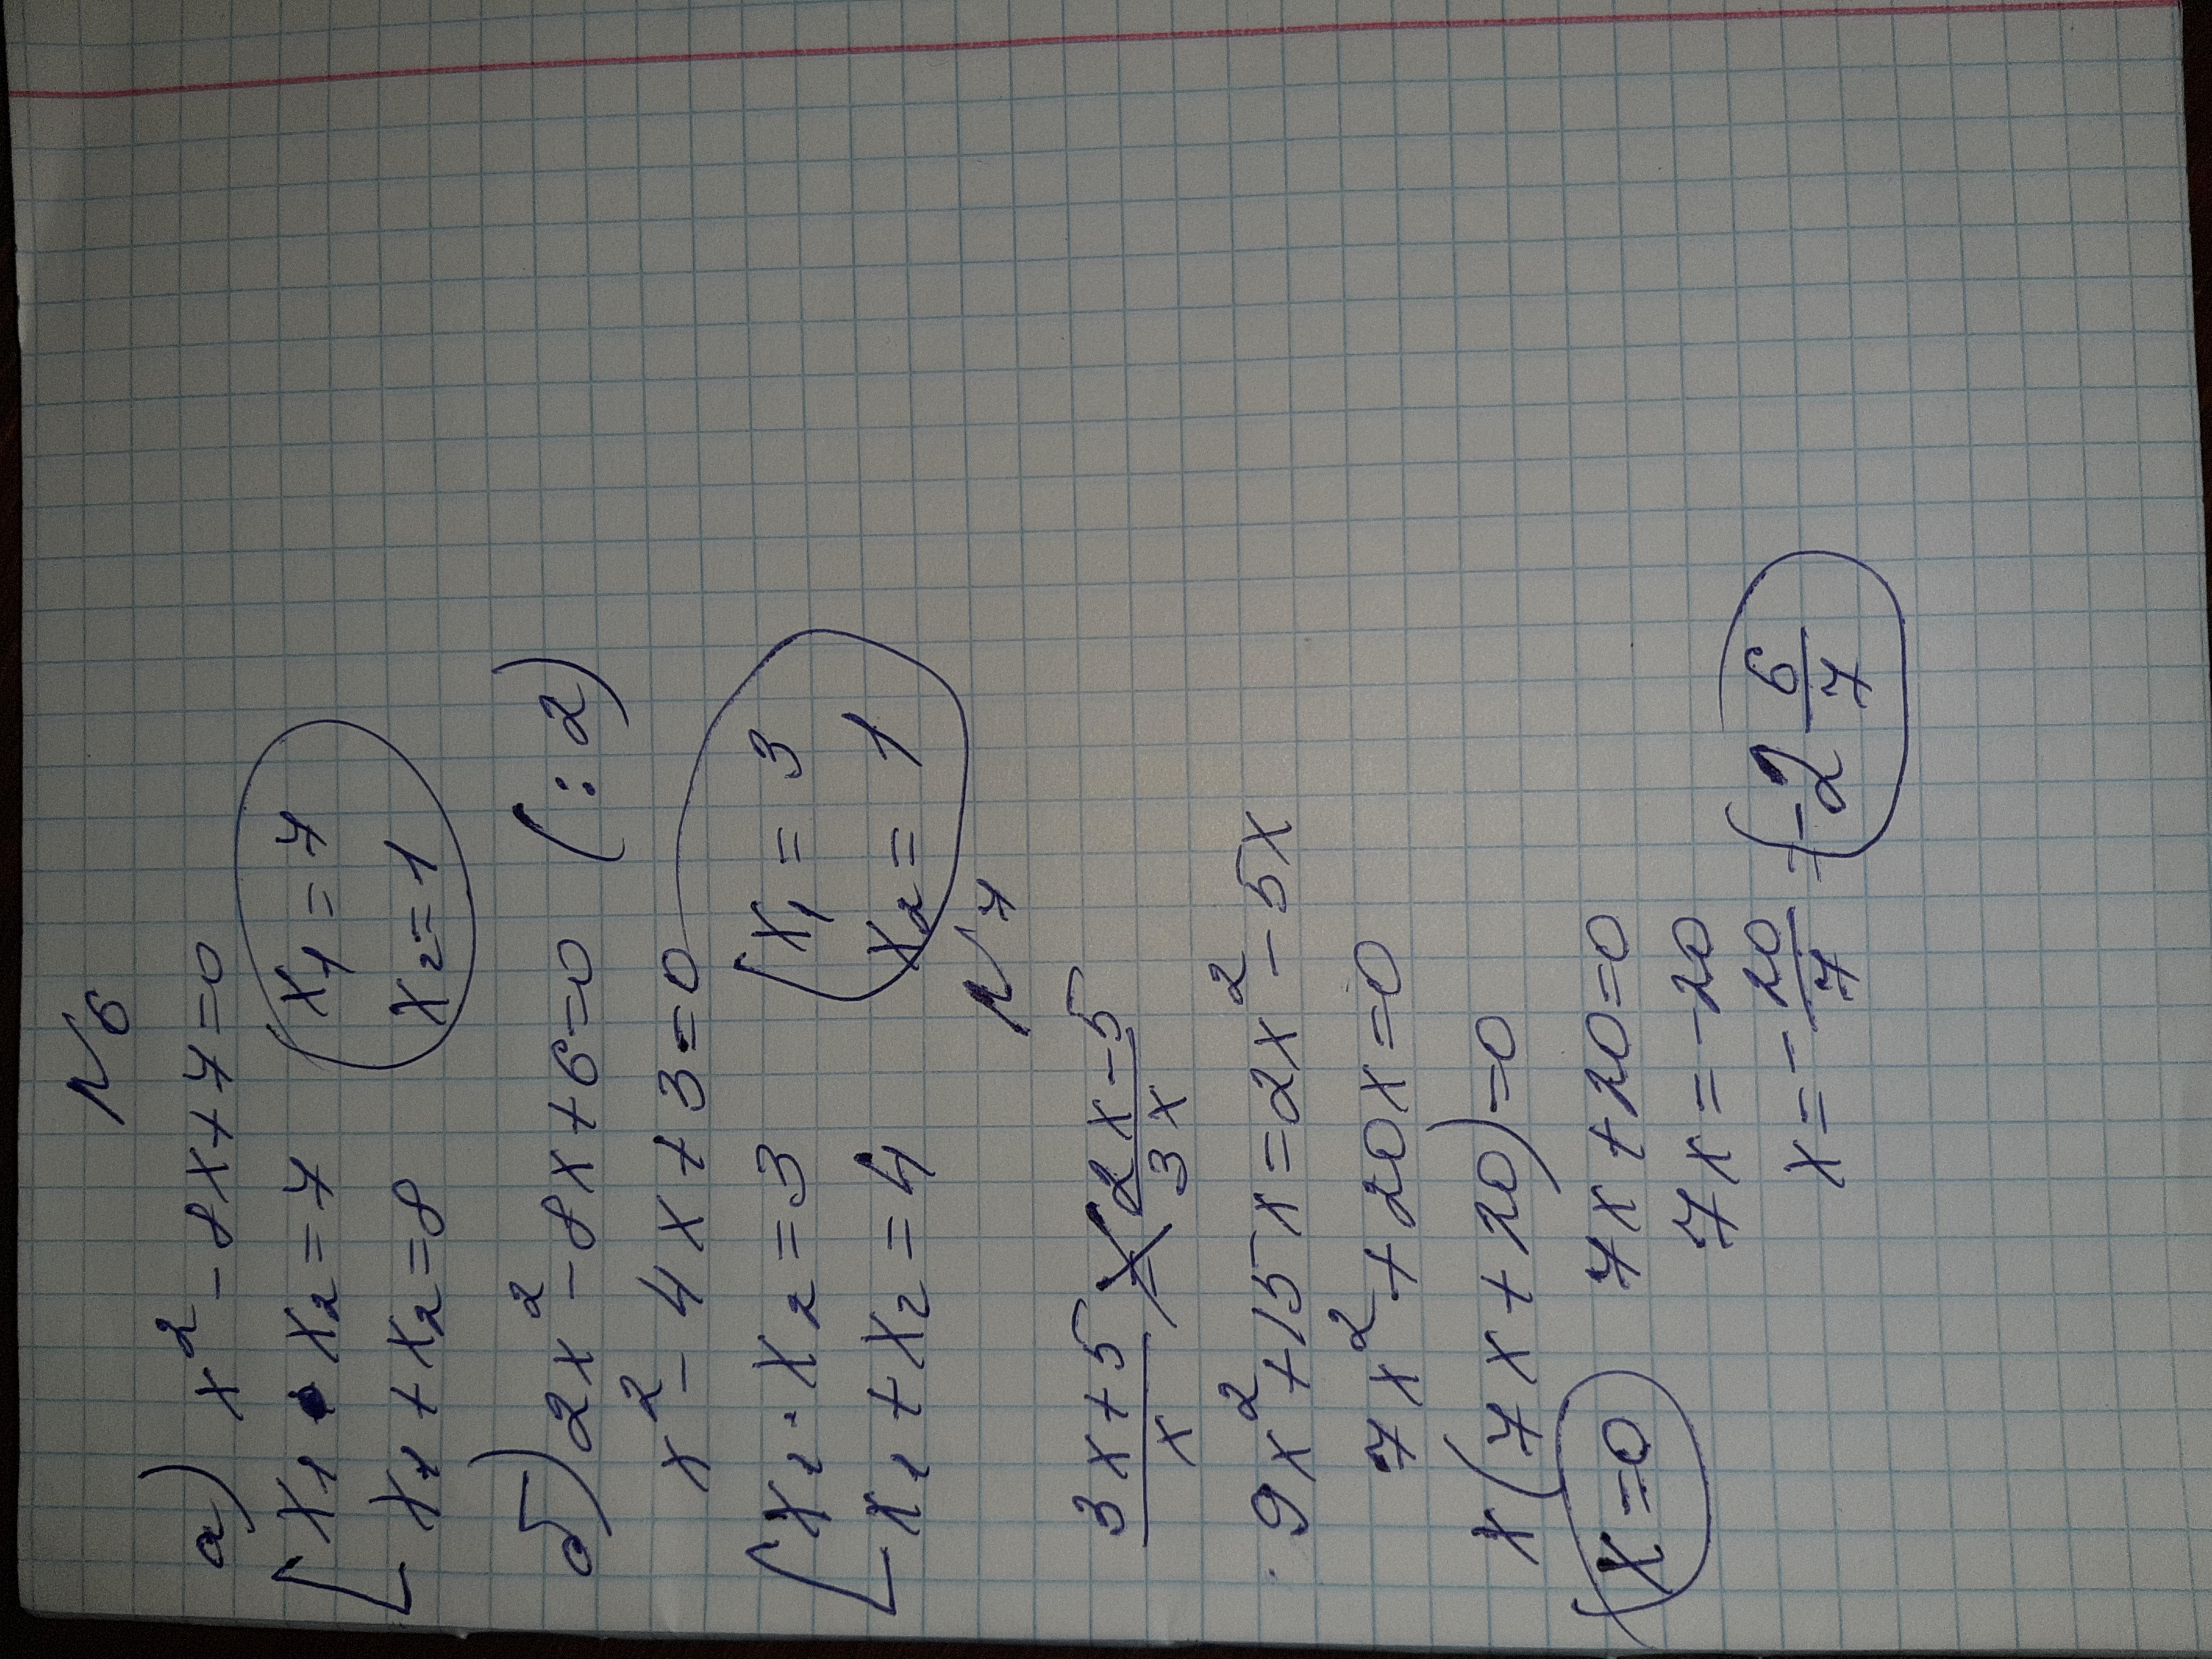 N6
а) x² - 8x + 7 = 0
[ x₁ • x₂ = 7 ( x₁ = 7
[ x₁ + x₂ = 8 x₂ = 1
б) 2x² - 8x + 6 = 0 (: 2)
x² - 4x + 3 = 0
[ x₁ · x₂ = 3 [ x₁ = 3
[ x₁ + x₂ = 4 x₂ = 1
N7
(3x + 5)/x = (2x - 5)/(3x)
9x² + 15x = 2x² - 5x
7x² + 20x = 0
x(7x + 20) = 0
x = 0 7x + 20 = 0
7x = -20
x = -20/7 = -2 6/7